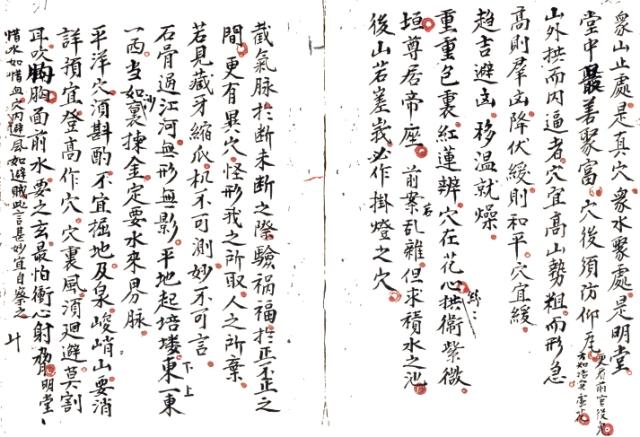 眾山止處是真穴眾水聚處是明堂
堂中最善聚富穴後須防仰瓦
山外拱而內逼者穴宜高山勢粗而形急
高則羣凶降伏緩則和平穴宜緩
趨吉避凶移溫就燥
重重包裹紅蓮辨穴在花心拱衛紫微
垣尊居帝座前案若亂雜但求積水之池
後山若嵯峩必作掛燈之穴
截氣脉於斷未斷之際驗禍福於正不正之
間更有異穴怪形我之所取人之所棄
若見藏牙縮爪机不可測妙不可言
石骨過江河無形無影平地起培塿東一東
一西当如裏揀金定要水來界脉
平洋穴須斟酌不宜掘地及泉峻峭山要消
詳預宜登高作穴穴裏風須廻避莫割
耳吹胸面前水要之玄最怕衝心射脅明堂
惜水如惜血穴內避風如避賊此言甚妙宜自察之